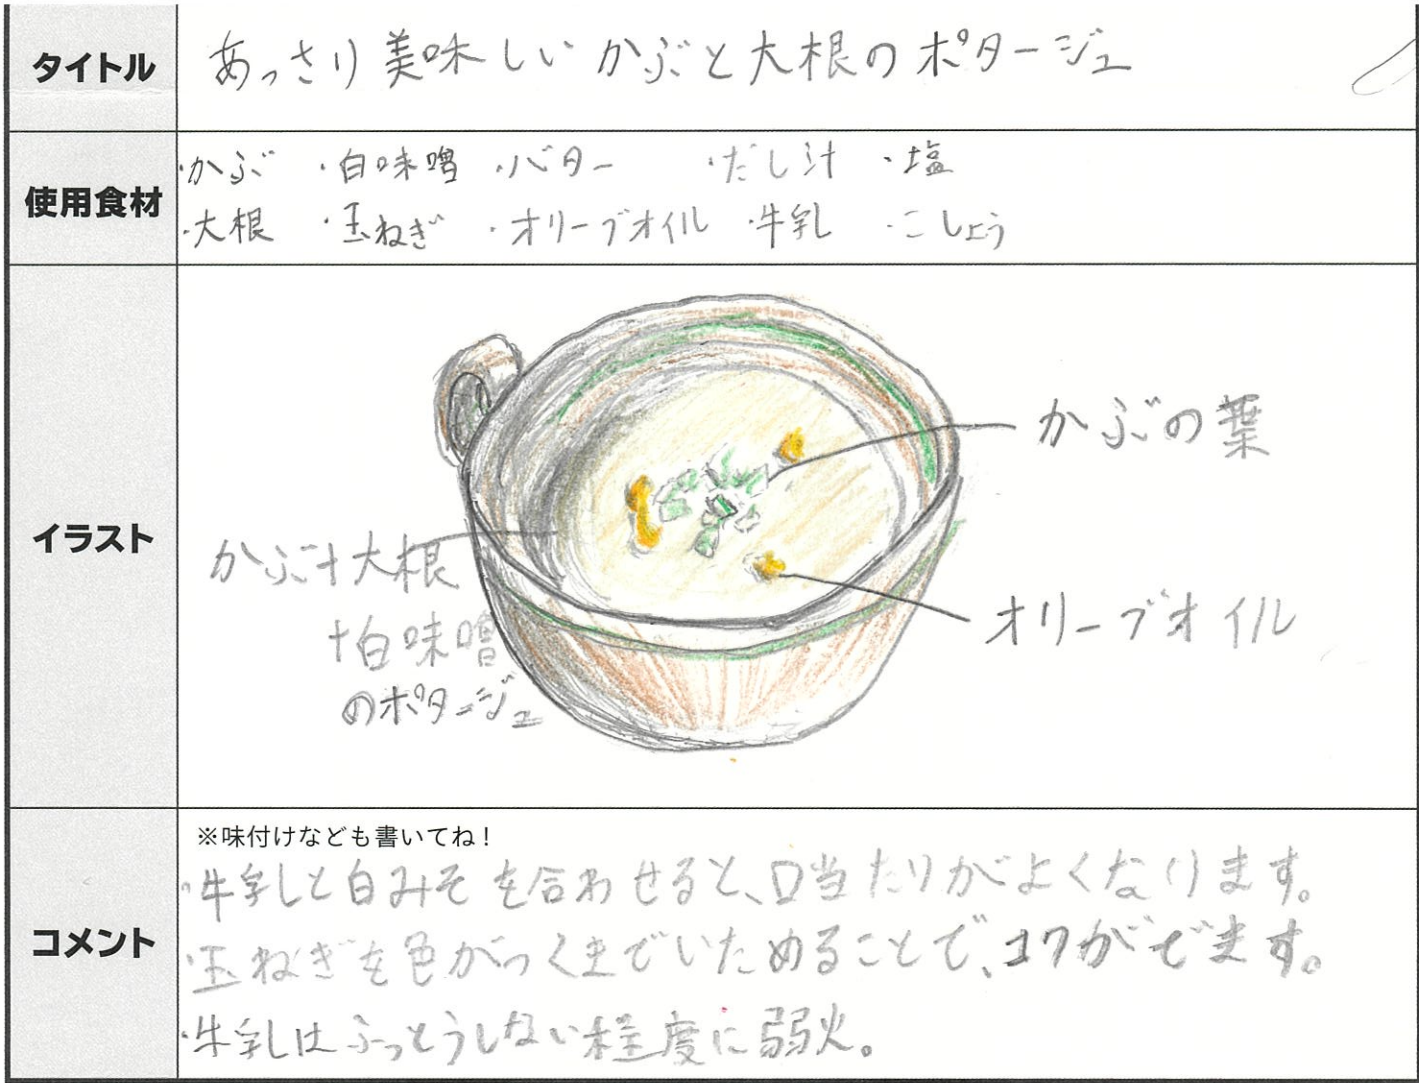 タイトル
あっさり美味しい かぶと大根のポタージュ
使用食材
・かぶ ・白味噌 ・バター ・だし汁 ・塩
・大根 ・玉ねぎ ・オリーブオイル ・牛乳 ・こしょう
イラスト
かぶの葉
かぶ+大根
+白味噌
のポタージュ
オリーブオイル
コメント
※味付けなども書いてね!
・牛乳と白みそを合わせると、口当たりがよくなります。
・玉ねぎを色がつくまでいためることで、コクがでます。
・牛乳はふっとうしない程度に弱火。